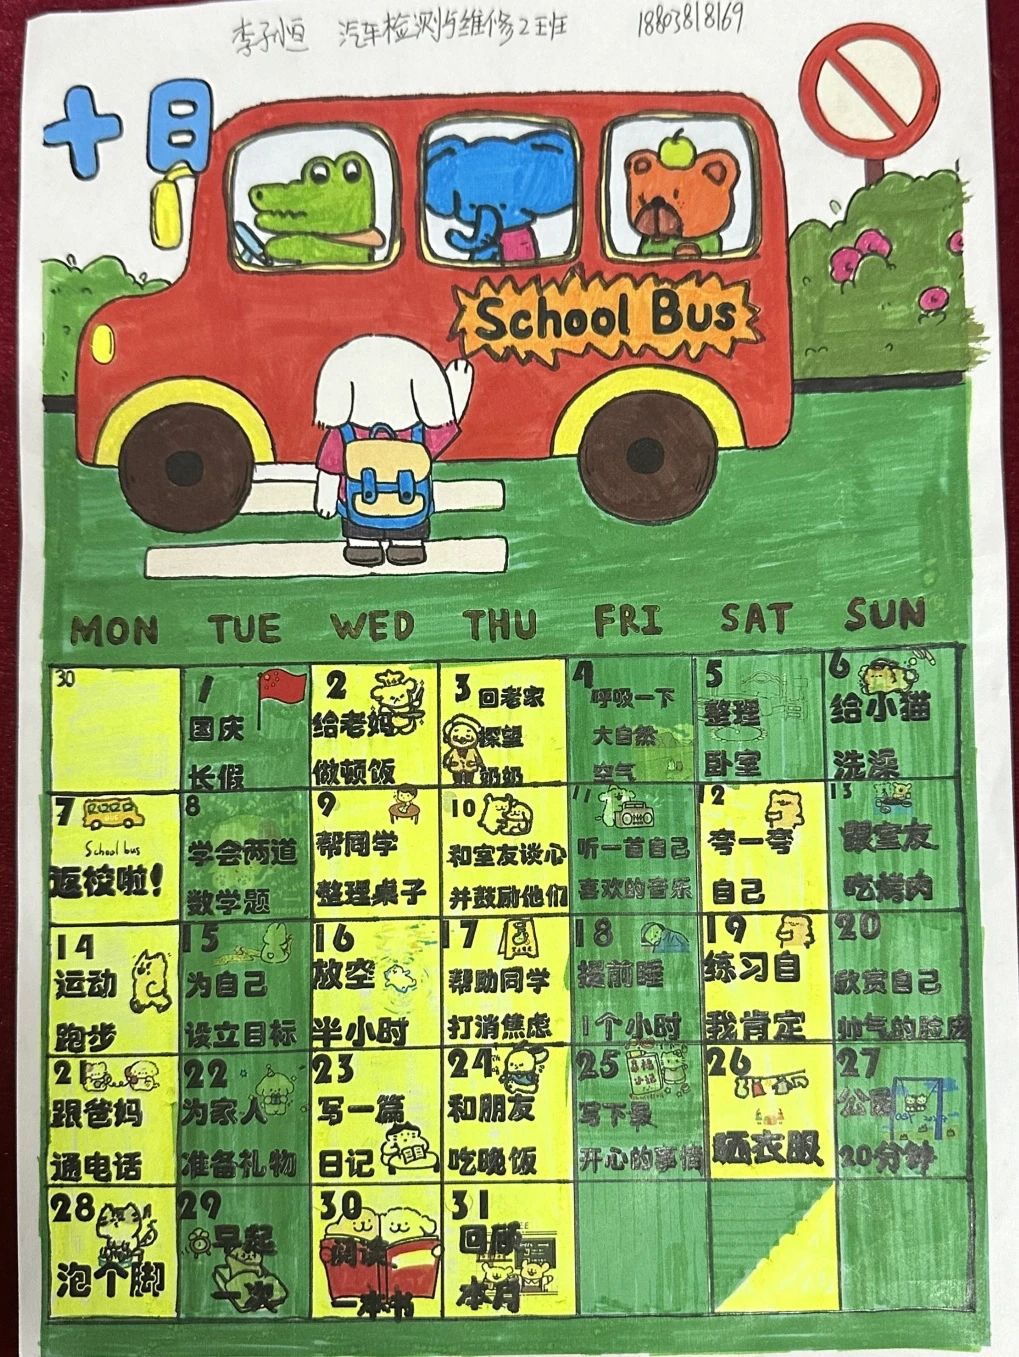 李子恒 汽车检测与维修2班 18803818169
十月
School Bus
MON TUE WED THU FRI SAT SUN
30
1
国庆
长假
2
给老妈
做顿饭
3 回老家
探望
奶奶
4
呼吸一下
大自然
空气
5
整理
卧室
6
给小猫
洗澡
7
School bus
返校啦!
8
学会两道
数学题
9
帮同学
整理桌子
10
和室友谈心
并鼓励他们
11
听一首自己
喜欢的音乐
12
夸一夸
自己
13
跟室友
吃烤肉
14
运动
跑步
15
为自己
设立目标
16
放空
半小时
17
帮助同学
打消焦虑
18
提前睡
1个小时
19
练习自
我肯定
20
欣赏自己
帅气的脸庞
21
跟爸妈
通电话
22
为家人
准备礼物
23
写一篇
日记
24
和朋友
吃晚饭
25
写下最
开心的事情
26
晒衣服
27
公园
20分钟
28
泡个脚
29
早起
一次
30
阅读
一本书
31
回顾
本月